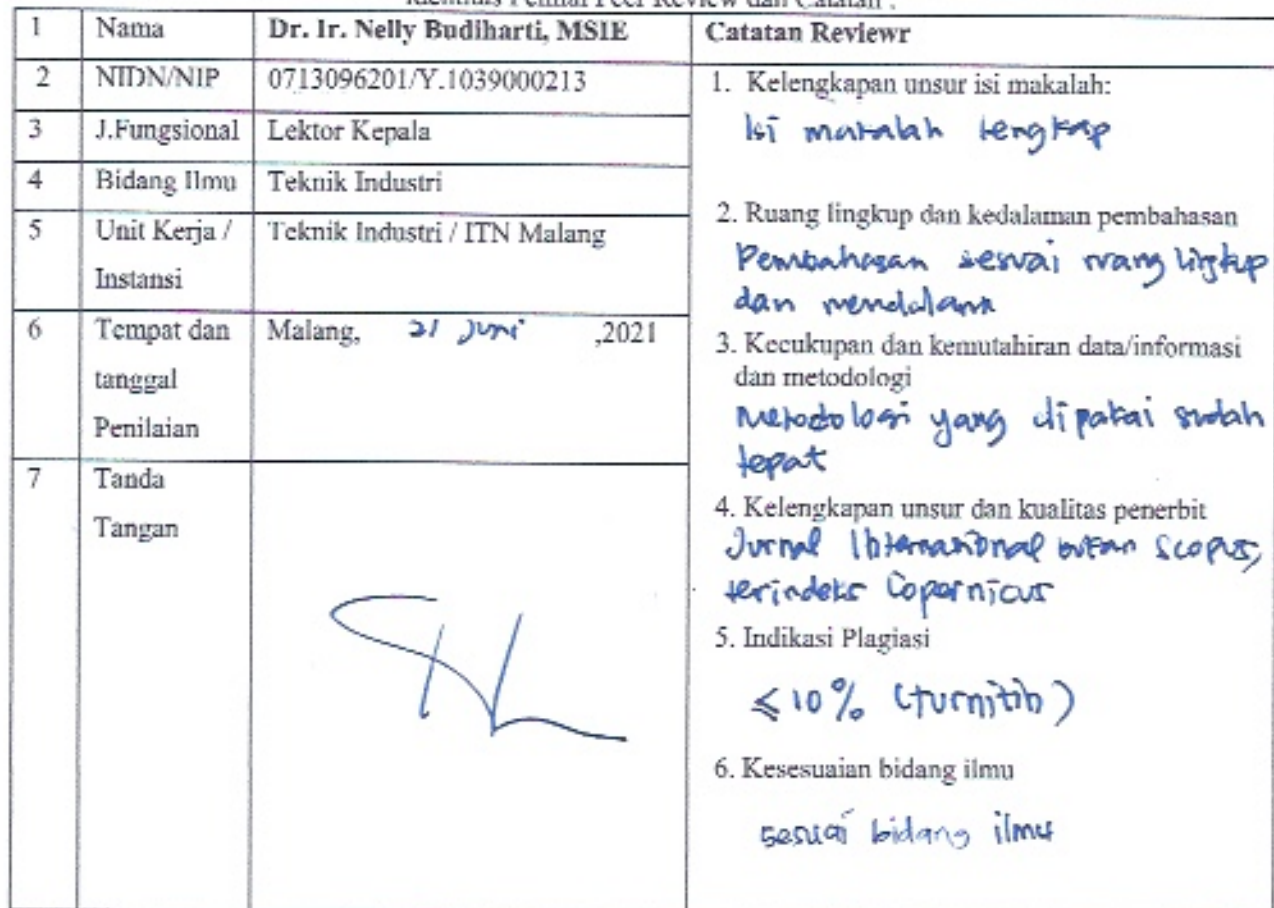 Identitas Penilai Peer Review dan Catatan :
1 Nama Dr. Ir. Nelly Budiharti, MSIE
2 NIDN/NIP 0713096201/Y.1039000213
3 J.Fungsional Lektor Kepala
4 Bidang Ilmu Teknik Industri
5 Unit Kerja / Teknik Industri / ITN Malang
Instansi
6 Tempat dan Malang, 21 Juni ,2021
tanggal
Penilaian
7 Tanda
Tangan
Catatan Reviewr
1. Kelengkapan unsur isi makalah:
Isi makalah lengkap
2. Ruang lingkup dan kedalaman pembahasan
Pembahasan sesuai ruang lingkup
dan mendalam
3. Kecukupan dan kemutahiran data/informasi
dan metodologi
Metodologi yang dipakai sudah
tepat
4. Kelengkapan unsur dan kualitas penerbit
Jurnal Internasional bukan Scopus,
terindeks Copernicus
5. Indikasi Plagiasi
≤ 10% (turnitin)
6. Kesesuaian bidang ilmu
sesuai bidang ilmu